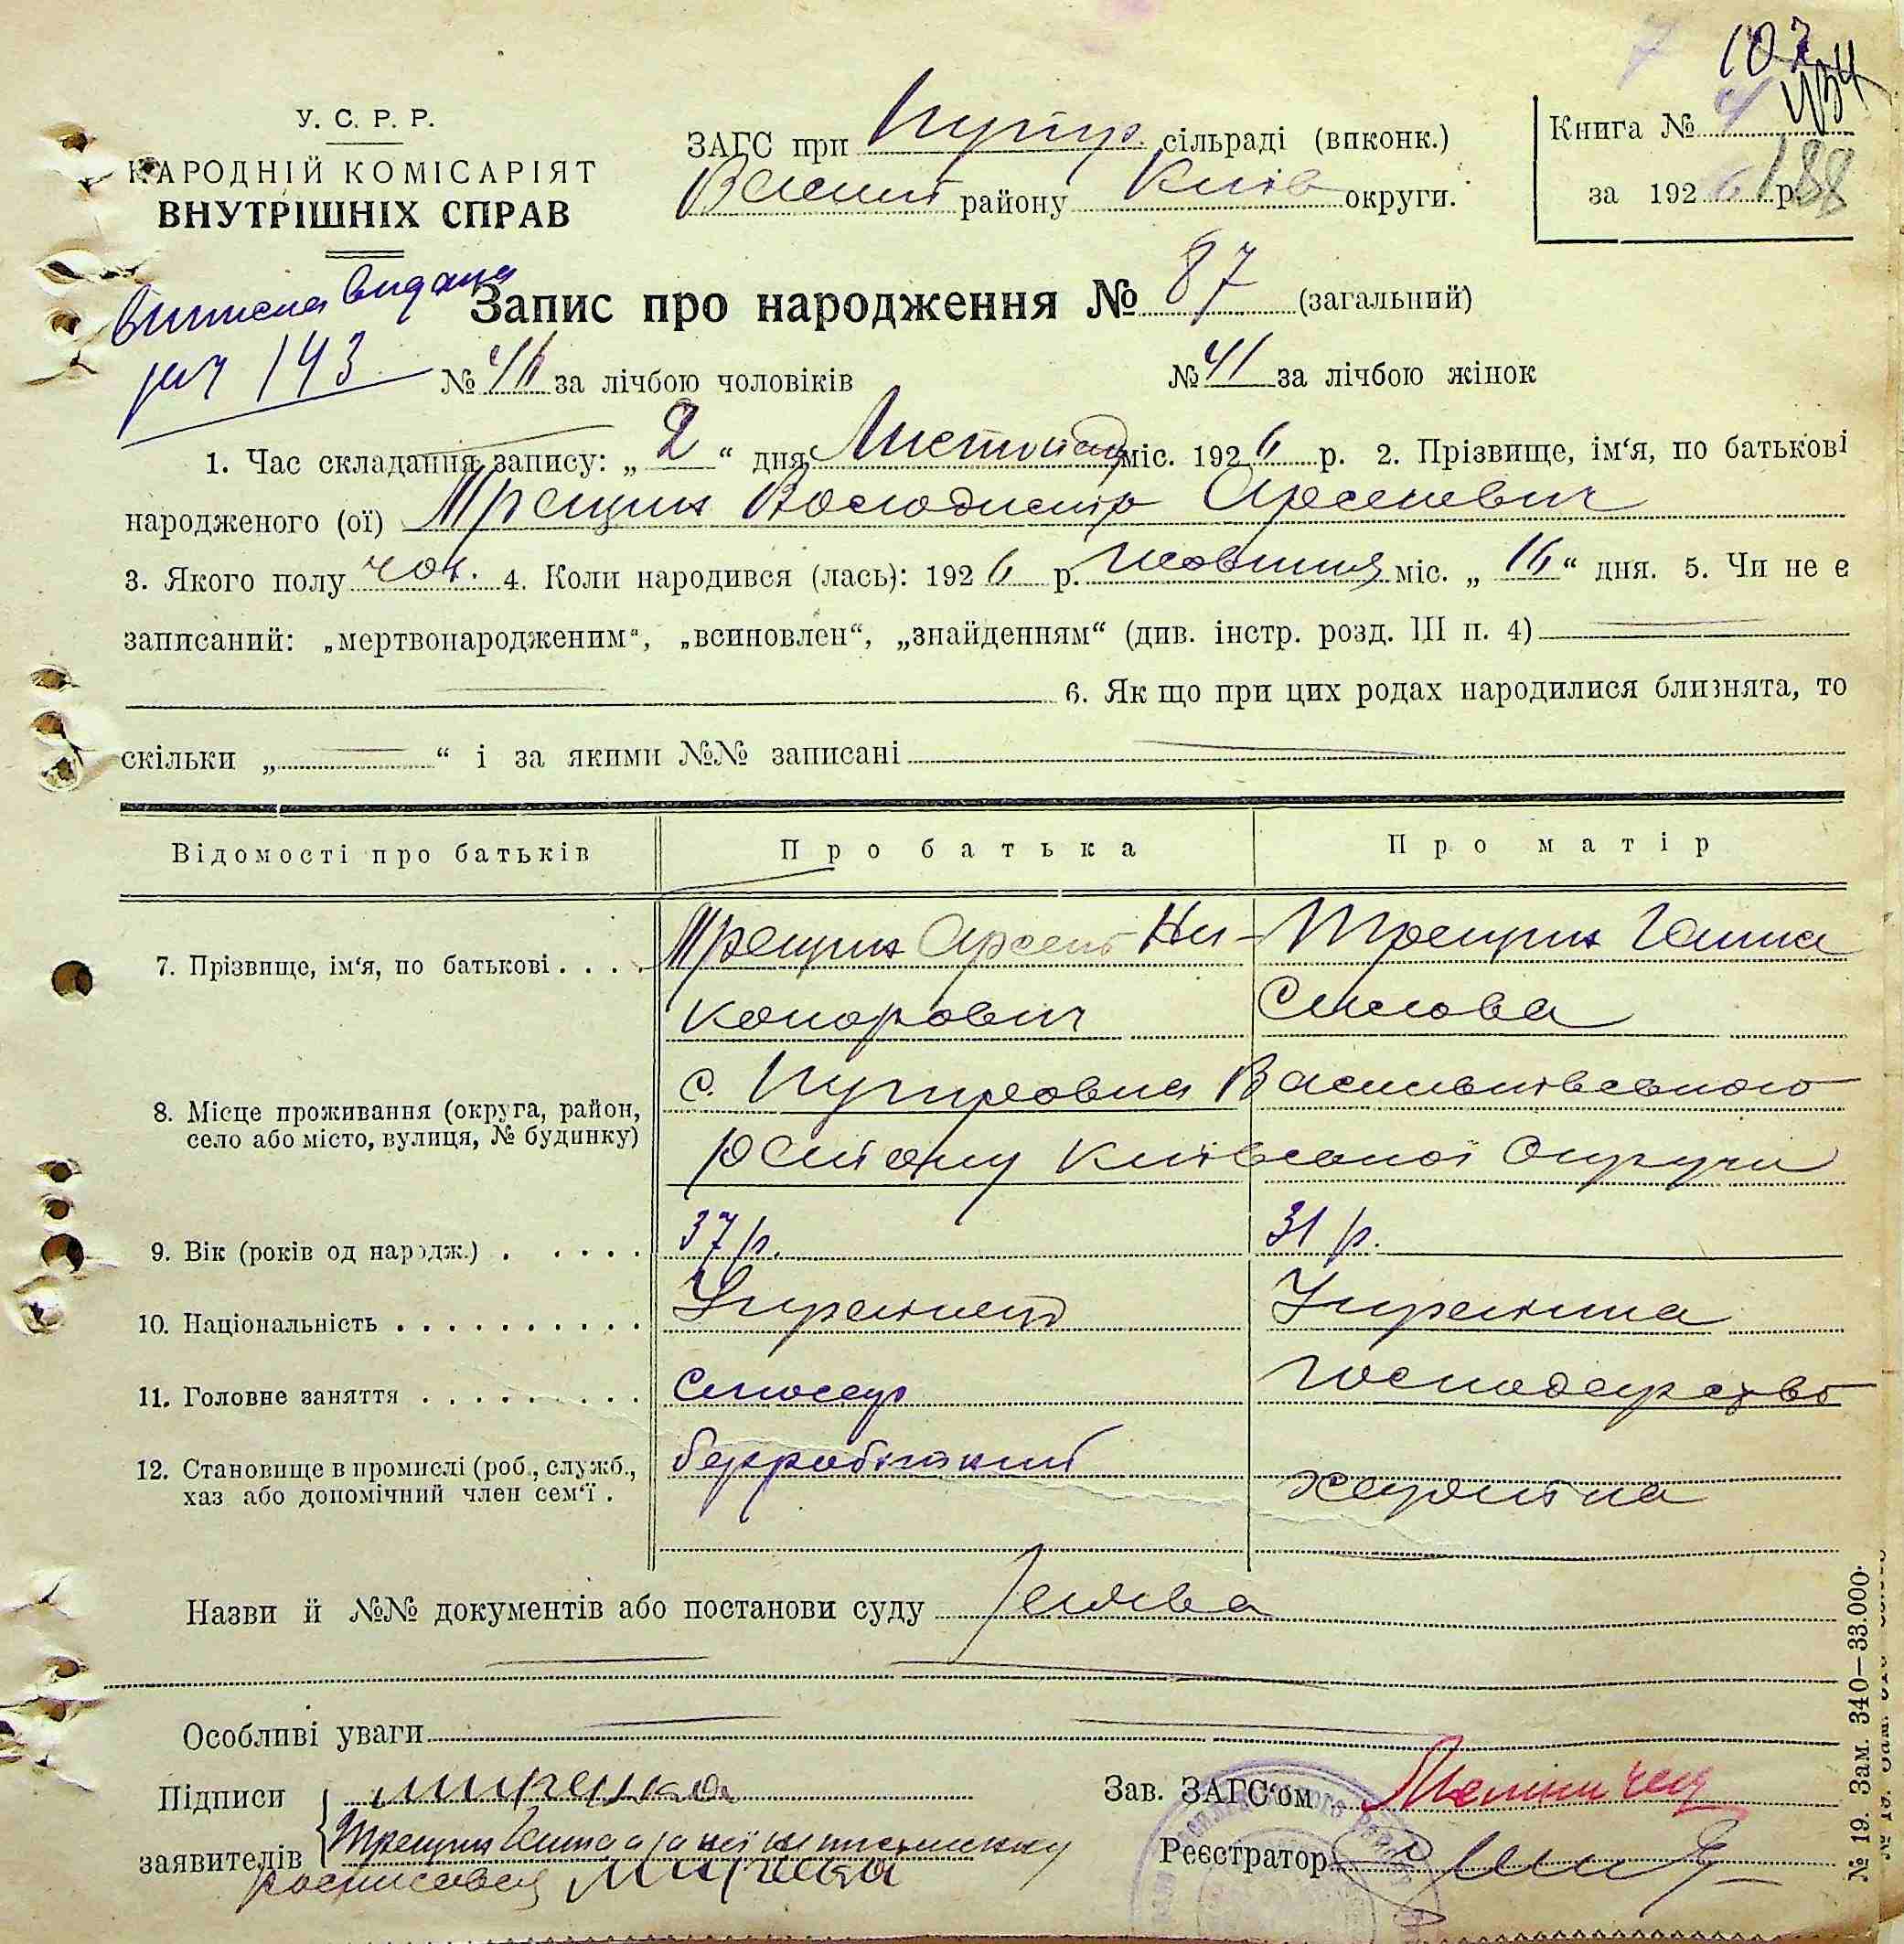 107
434
188
У. С. Р. Р.
НАРОДНІЙ КОМІСАРІЯТ
ВНУТРІШНІХ СПРАВ
ЗАГС при Путр. сільраді (виконк.)
Васильк району Київ округи.
Книга №
за 1926 р.
виписка видана
143
Запис про народження № 87 (загальний)
№ 46 за лічбою чоловіків № 41 за лічбою жінок
1. Час складання запису: „2“ дня Листопад міс. 1926 р. 2. Прізвище, ім‘я, по батькові
народженого (ої) Трещин Володимір Арсеневич
3. Якого полу чол. 4. Коли народився (лась): 1926 р. жовтня міс. „16“ дня. 5. Чи не є
записаний: „мертвонародженим“, „всиновлен“, „знайденням“ (див. інстр. розд. III п. 4)
6. Як що при цих родах народилися близнята, то
скільки „ “ і за якими №№ записані
Відомості про батьків Про батька Про матір
7. Прізвище, ім‘я, по батькові . . . . Трещин Арсень Ни- Трещин Ганна
конорович Силова
8. Місце проживання (округа, район, село або місто, вулиця, № будинку) с. Путровка Васильківського
району Київської Округи
9. Вік (років од народж.) . . . . . . 37 р. 31 р.
10. Національність . . . . . . . . . . Українець Українка
11. Головне заняття . . . . . . . . . Слюсар господарство
12. Становище в промислі (роб., служб., хаз або допомічний член сем‘ї . безробітний
Назви й №№ документів або постанови суду Заява
Особливі уваги
Підписи
заявителів Трещин Ганна а за неї неписьменну
росписався
Зав. ЗАГС‘ом
Реєстратор
№ 19. Зам. 340—33.000.